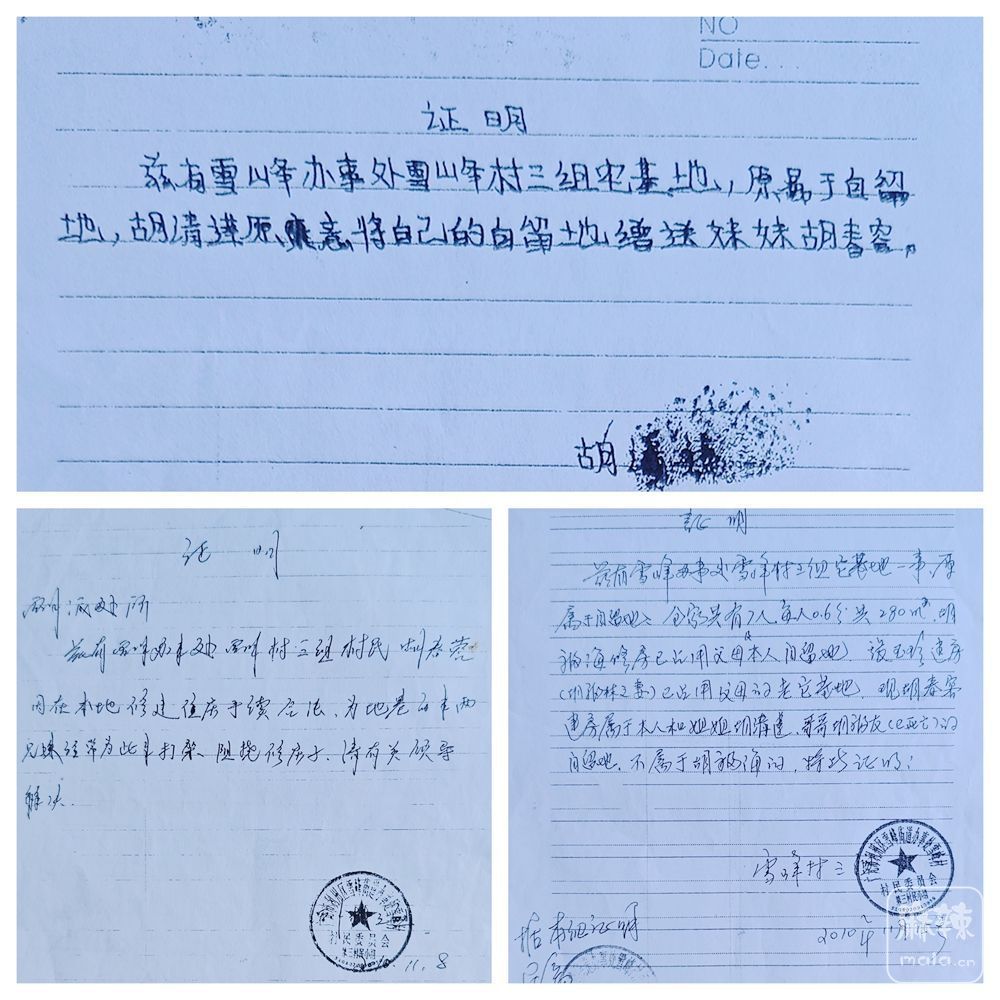 NO
Date...
证明
兹有雪峰办事处雪峰村三组宅基地，原属于自留
地，胡清莲原来意将自己的自留地缯送妹妹胡春容。
胡
证明
派出所
兹有雪峰办事处雪峰村三组村民胡春容
因在本地修建住房手续合法，为地基的事两
兄妹经常为此事打架、阻挠修房子，请有关领导
解决。
村民委员会
11.8
证明
兹有雪峰办事处雪峰村三组宅基地一事，原
属于自留地，全家共有7人每人0.6分共280m²，胡
海修房已占用父母本人自留地，
已占用父母的老宅基地，现胡春容
建房属于本人和姐姐胡清莲，哥哥胡友(已死亡)的
自留地，不属于胡海的，特此证明：
雪峰村三
广安市广安区雪峰街道办事处雪峰村
村民委员会
2010年11月
据本组证明
麻辣
mala.cn